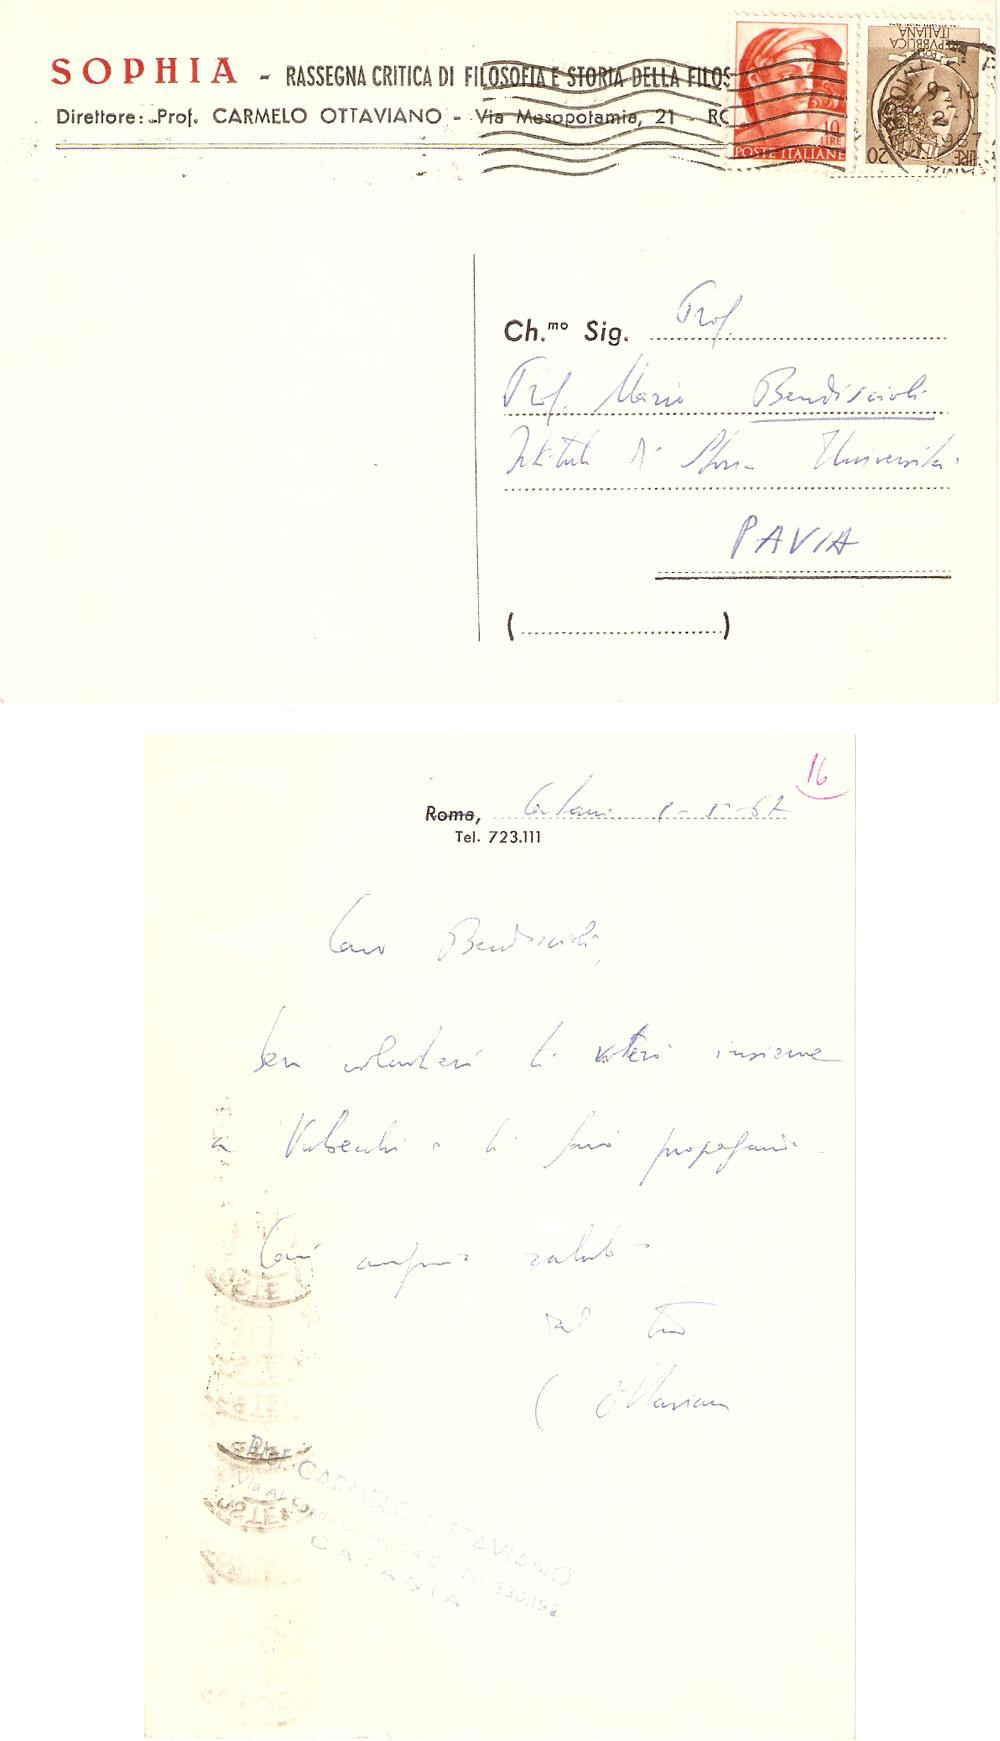 SOPHIA - RASSEGNA CRITICA DI FILOSOFIA E STORIA DELLA FILOS
Direttore: Prof. CARMELO OTTAVIANO - Via Mesopotamia, 21 - RO
10
LIRE
POSTE ITALIANE
REPVBBLICA
ITALIANA
LIRE 20
Ch.mo Sig. Prof.
Prof. Mario Bendiscioli
Istituto di Storia Università
PAVIA
(....................)
16
Roma, Catania
Tel. 723.111
Caro Bendiscioli,
ben volentieri ti voterò insieme
a Valsecchi e ti farò propaganda.
Cari auguri e saluti
dal tuo
C Ottaviano
Prof. CARMELO OTTAVIANO
Via Tel. 330.192
CATANIA